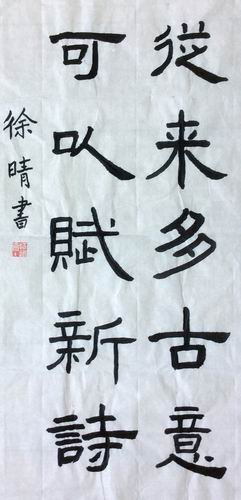 從来多古意
可以賦新詩
徐晴書